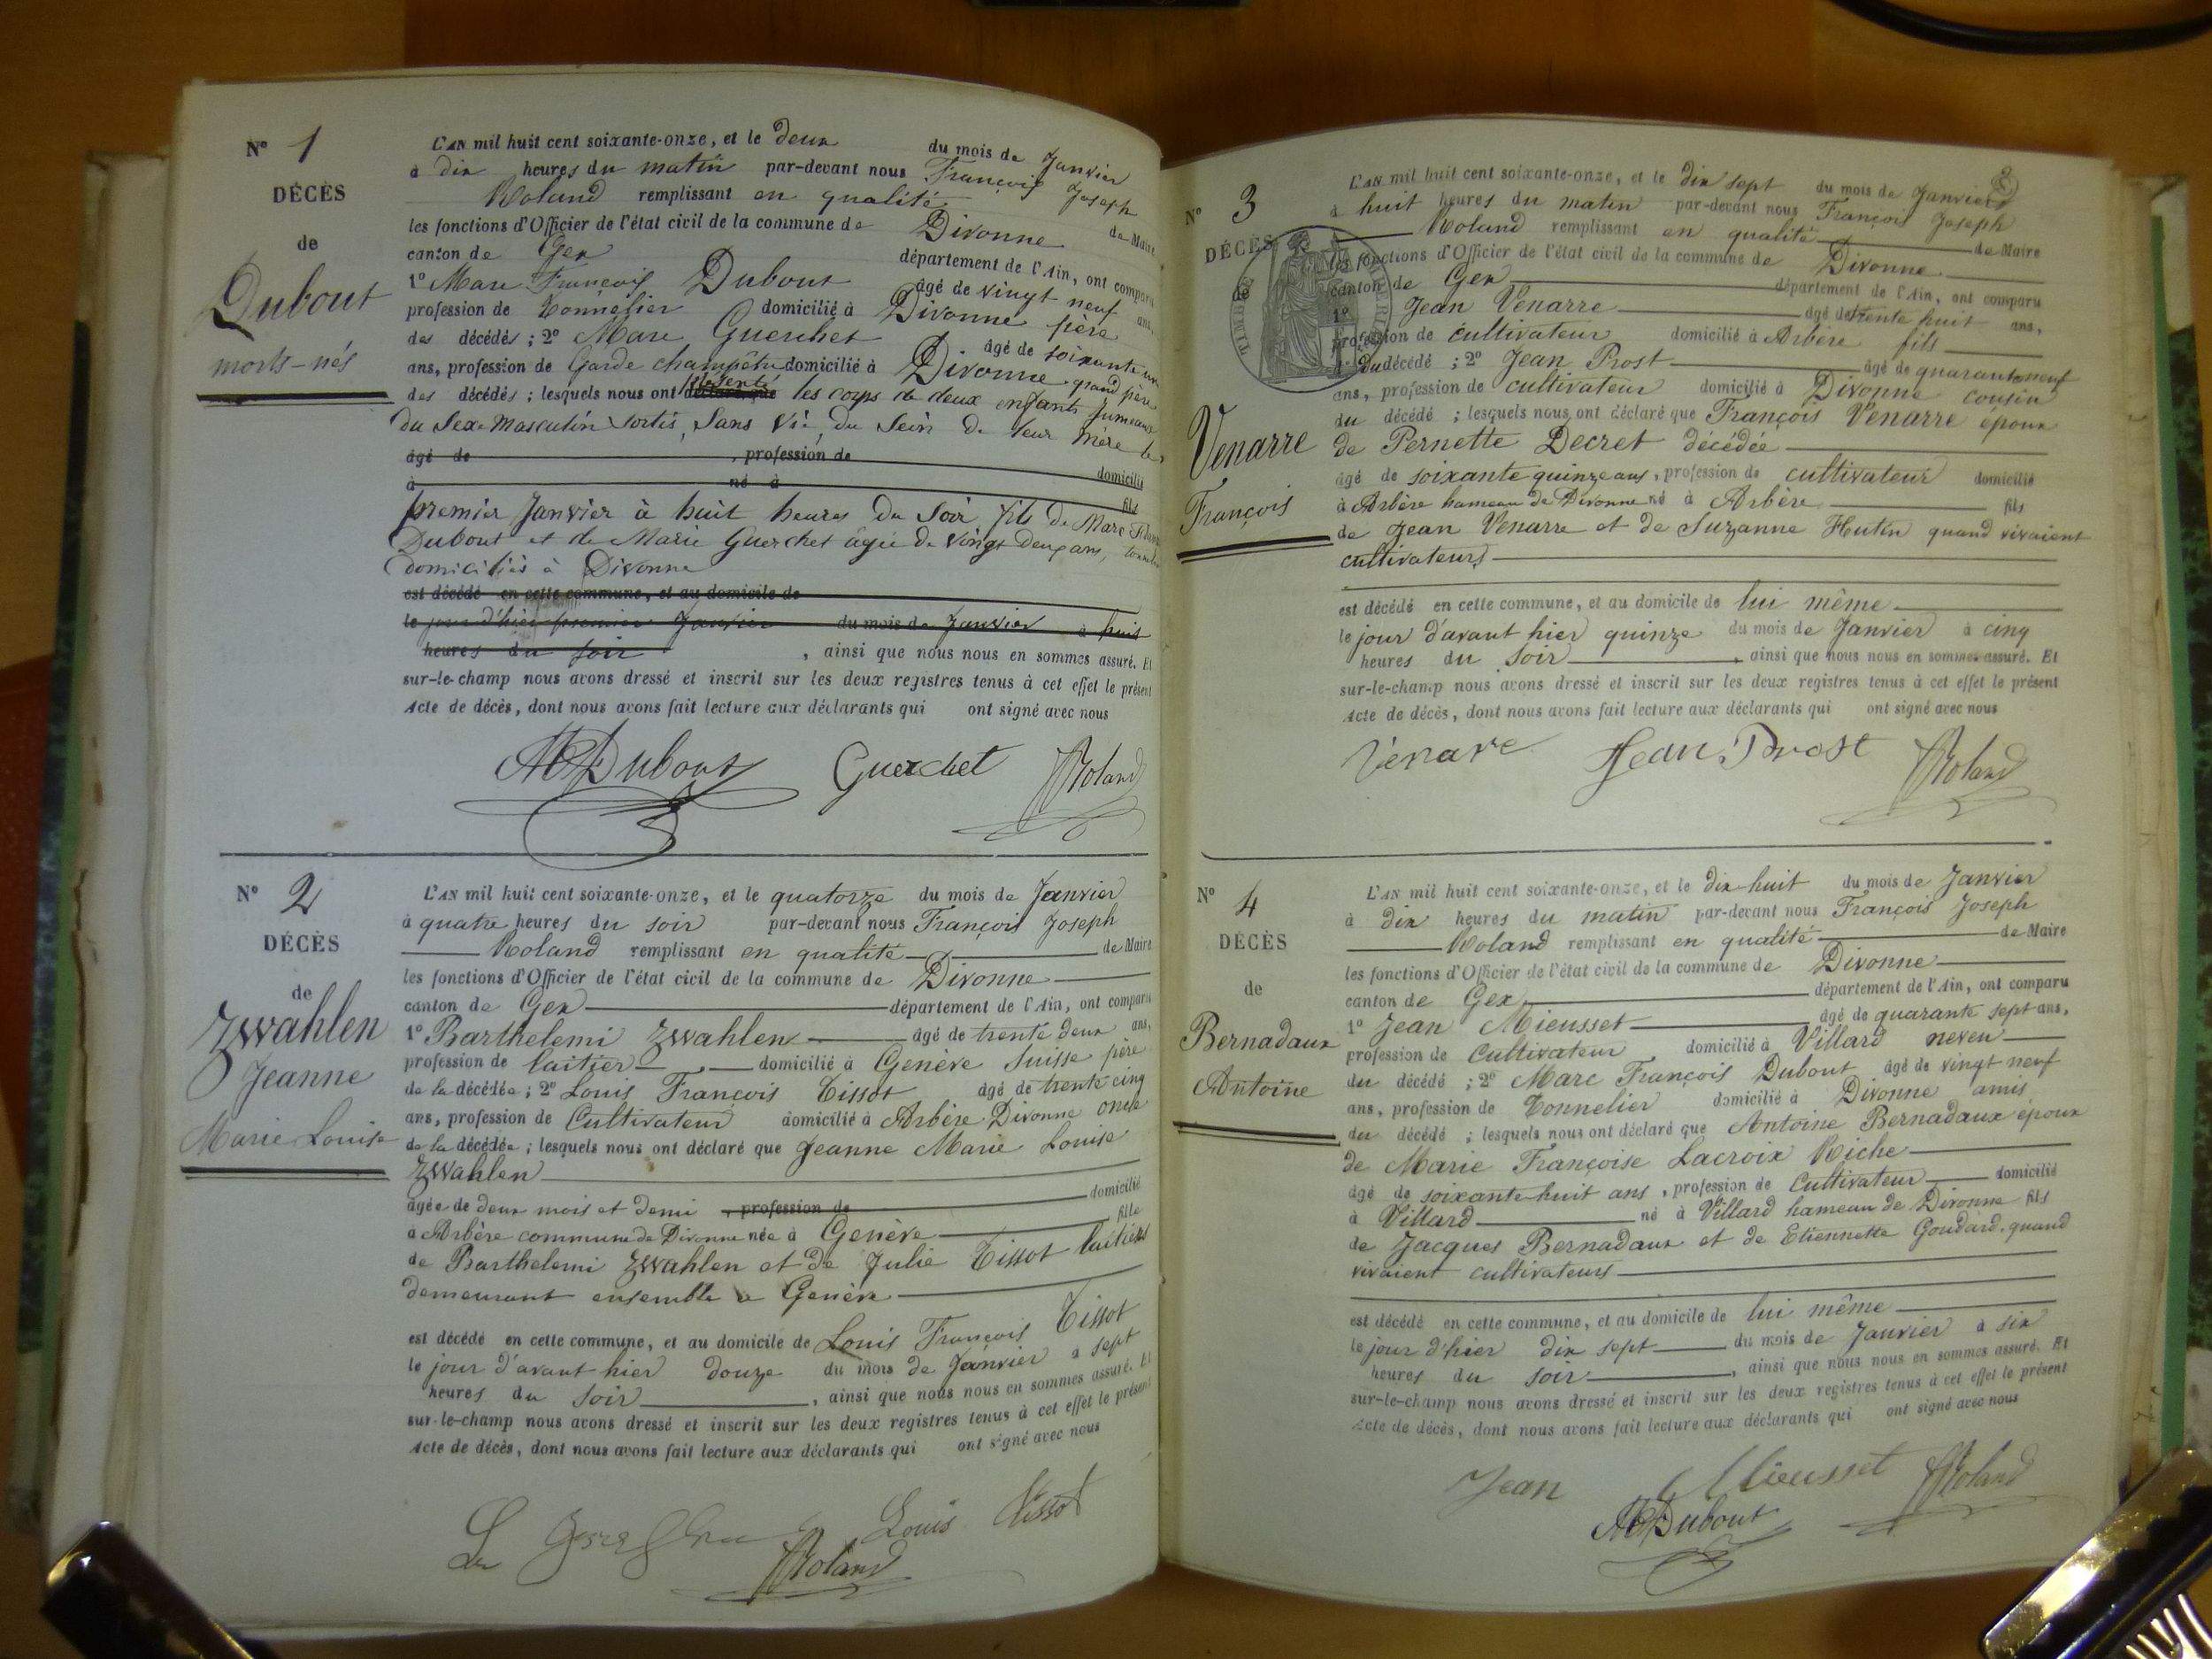 N° 1
DÉCÈS
de
Dubout
morts-nés
L'AN mil huit cent soixante-onze, et le deux du mois de Janvier
à dix heures du matin par-devant nous François Joseph
Roland remplissant en qualité de Maire
les fonctions d'Officier de l'état civil de la commune de Divonne
canton de Gex département de l'Ain, ont comparu
1° Marc François Dubout âgé de vingt neuf ans,
profession de Tonnelier domicilié à Divonne père
des décédés ; 2° Marc Guerchet âgé de soixante un
ans, profession de Garde champêtre domicilié à Divonne grand père
des décédés ; lesquels nous ont présenté les corps de deux enfants jumeaux
du Sexe Masculin sortis, Sans Vie, du Sein de leur Mère le
âgé de , profession de domicilié
à né à fils
premier Janvier à huit heures du Soir, fils de Marc
Dubout et de Marie Guerchet agée de Vingt Deux ans,
domiciliés à Divonne
est décédé en cette commune, et au domicile de
le jour d'hier premier Janvier du mois de Janvier à huit
heures du soir , ainsi que nous nous en sommes assuré. Et
sur-le-champ nous avons dressé et inscrit sur les deux registres tenus à cet effet le présent
Acte de décès, dont nous avons fait lecture aux déclarants qui ont signé avec nous
Dubout Guerchet Roland
N° 2
DÉCÈS
de
Zwahlen
Jeanne
Marie Louise
L'AN mil huit cent soixante-onze, et le quatorze du mois de Janvier
à quatre heures du soir par-devant nous François Joseph
Roland remplissant en qualité de Maire
les fonctions d'Officier de l'état civil de la commune de Divonne
canton de Gex département de l'Ain, ont comparu
1° Barthelemi Zwahlen âgé de trente deux ans,
profession de laitier domicilié à Genève Suisse père
de la décédée ; 2° Louis François Tissot âgé de trente cinq
ans, profession de Cultivateur domicilié à Arbère Divonne oncle
de la décédée ; lesquels nous ont déclaré que Jeanne Marie Louise
Zwahlen
âgée de deux mois et demi , profession de domicilié
à Arbère commune de Divonne née à Genève fille
de Barthelemi Zwahlen et de Julie Tissot laitiers
demeurant ensemble à Genève
est décédé en cette commune, et au domicile de Louis François Tissot
le jour d'avant hier douze du mois de Janvier à sept
heures du soir , ainsi que nous nous en sommes assuré. Et
sur-le-champ nous avons dressé et inscrit sur les deux registres tenus à cet effet le présent
Acte de décès, dont nous avons fait lecture aux déclarants qui ont signé avec nous
Louis Tissot
Roland
2
N° 3
DÉCÈS
de
Venarre
François
TIMBRE
L'AN mil huit cent soixante-onze, et le dix sept du mois de Janvier
à huit heures du matin par-devant nous François Joseph
Roland remplissant en qualité de Maire
les fonctions d'Officier de l'état civil de la commune de Divonne
canton de Gex département de l'Ain, ont comparu
1° Jean Venarre âgé de trente huit ans,
profession de cultivateur domicilié à Arbère fils
du décédé ; 2° Jean Prost âgé de quarante neuf
ans, profession de cultivateur domicilié à Divonne cousin
du décédé ; lesquels nous ont déclaré que François Venarre époux
de Pernette Decret décédée
âgé de soixante quinze ans, profession de cultivateur domicilié
à Arbère hameau de Divonne né à Arbère fils
de Jean Venarre et de Suzanne Hutin quand vivaient
cultivateurs
est décédé en cette commune, et au domicile de lui même
le jour d'avant hier quinze du mois de Janvier à cinq
heures du soir , ainsi que nous nous en sommes assuré. Et
sur-le-champ nous avons dressé et inscrit sur les deux registres tenus à cet effet le présent
Acte de décès, dont nous avons fait lecture aux déclarants qui ont signé avec nous
Vénare Jean Prost Roland
N° 4
DÉCÈS
de
Bernadaux
Antoine
L'AN mil huit cent soixante-onze, et le dix-huit du mois de Janvier
à dix heures du matin par-devant nous François Joseph
Roland remplissant en qualité de Maire
les fonctions d'Officier de l'état civil de la commune de Divonne
canton de Gex département de l'Ain, ont comparu
1° Jean Mieusset âgé de quarante sept ans,
profession de Cultivateur domicilié à Villard neveu
du décédé ; 2° Marc François Dubout âgé de vingt neuf
ans, profession de Tonnelier domicilié à Divonne amis
du décédé ; lesquels nous ont déclaré que Antoine Bernadaux époux
de Marie Françoise Lacroix Riche
âgé de soixante-huit ans , profession de Cultivateur domicilié
à Villard né à Villard hameau de Divonne fils
de Jacques Bernadaux et de Etiennette Goudard. quand
vivaient cultivateurs
est décédé en cette commune, et au domicile de lui même
le jour d'hier dix sept du mois de Janvier à six
heures du soir , ainsi que nous nous en sommes assuré. Et
sur-le-champ nous avons dressé et inscrit sur les deux registres tenus à cet effet le présent
Acte de décès, dont nous avons fait lecture aux déclarants qui ont signé avec nous
Jean Mieusset Roland
Dubout